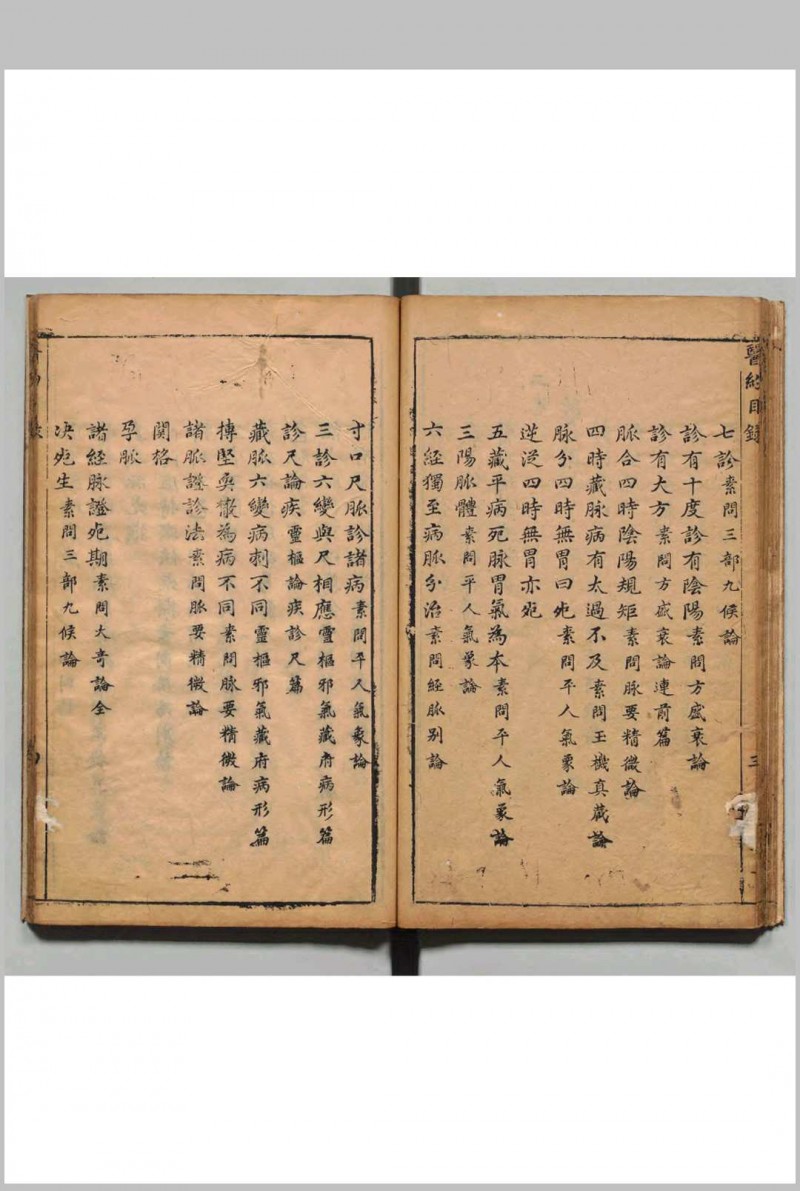 醫經目錄
三
七診素問三部九候論
診有十度診有陰陽素問方盛衰論
診有大方素問方盛衰論連前篇
脈合四時陰陽規矩素問脈要精微論
四時藏脉病有太過不及素問玉機真藏論
脉分四時無胃曰死素問平人氣象論
逆從四時無胃亦死
五藏平病死脉胃氣為本素問平人氣象論
三陽脈體素問平人氣象論
六經獨至病脈分治素問經脈别論
寸口尺脈診諸病素問平人氣象論
三診六變與尺相應靈樞邪氣藏府病形篇
診尺論疾靈樞論疾診尺篇
藏脈六變病刺不同靈樞邪氣藏府病形篇
搏堅耎散為病不同素問脉要精微論
諸脈證診法素問脈要精微論
関格
孕脈
諸經脈證死期素問大奇論全
决死生素問三部九候論